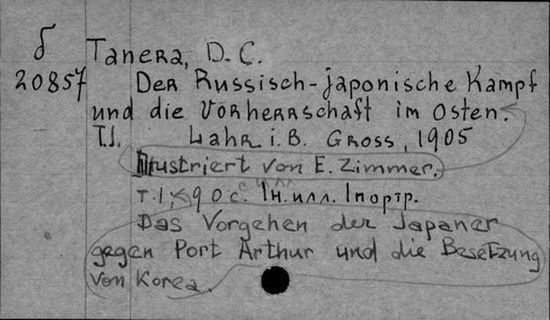 б
20857
Tanera, D. C.
Der Russisch-japonische Kampf
und die Vorherrschaft im Osten.
T.I. Lahr i. B. Gross, 1905
Illustriert von E. Zimmer.
т. 1. 90 с. 1н. илл. 1 портр.
Das Vorgehen der Japaner
gegen Port Arthur und die Besetzung
von Korea.